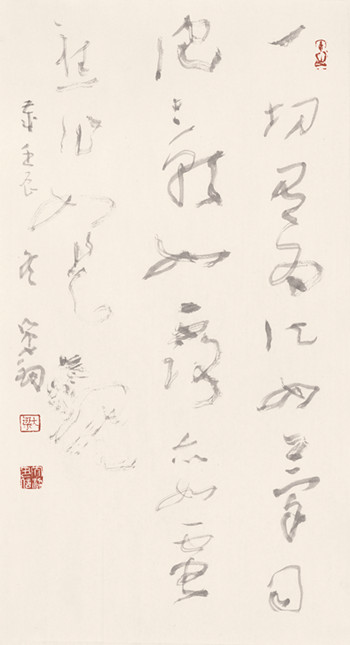 一切有為法如夢幻
泡影如露亦如電
應作如是
壬辰冬